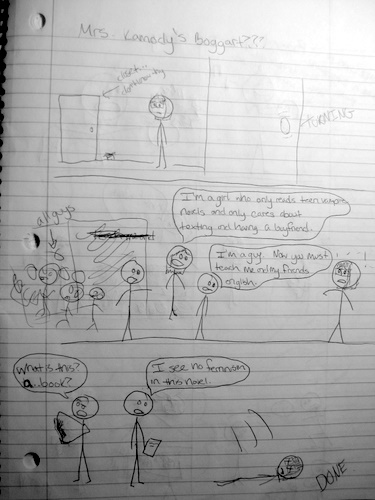 Mrs. Kamody's Boggart???
TURNING
I'm a girl who only reads teen vampire
novels and only cares about
texting and having a boyfriend.
all guys
I'm a guy. Now you must
teach me and my friends
english.
! ! !
What is this?
a book?
I see no feminism
in this novel.
DONE.